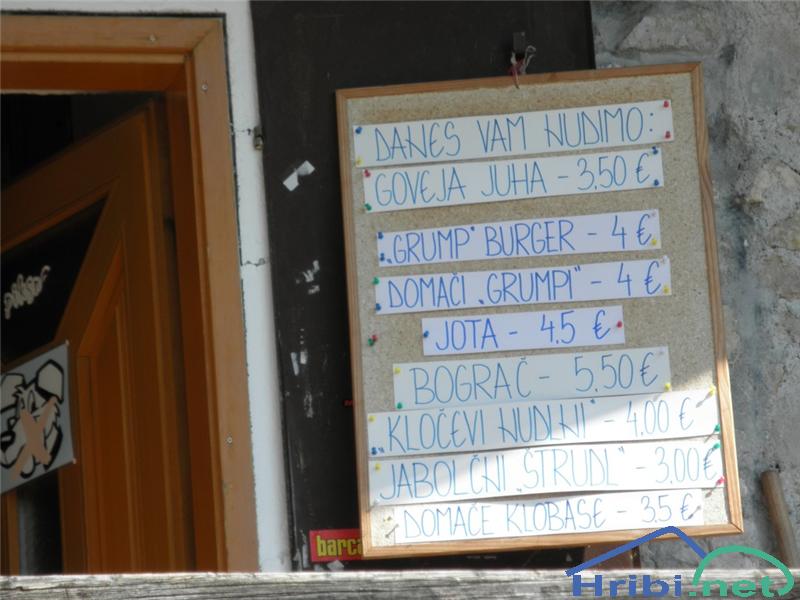 DANES VAM NUDIMO:
GOVEJA JUHA - 3,50 €
"GRUMP" BURGER - 4 €
DOMAČI "GRUMPI" - 4 €
JOTA - 4.5 €
BOGRAČ - 5,50 €
"KLOČEVI NUDLNI" - 4.00 €
JABOLČNI "ŠTRUDL" - 3,00 €
DOMAČE KLOBASE - 3.5 €
barca
Hribi.net